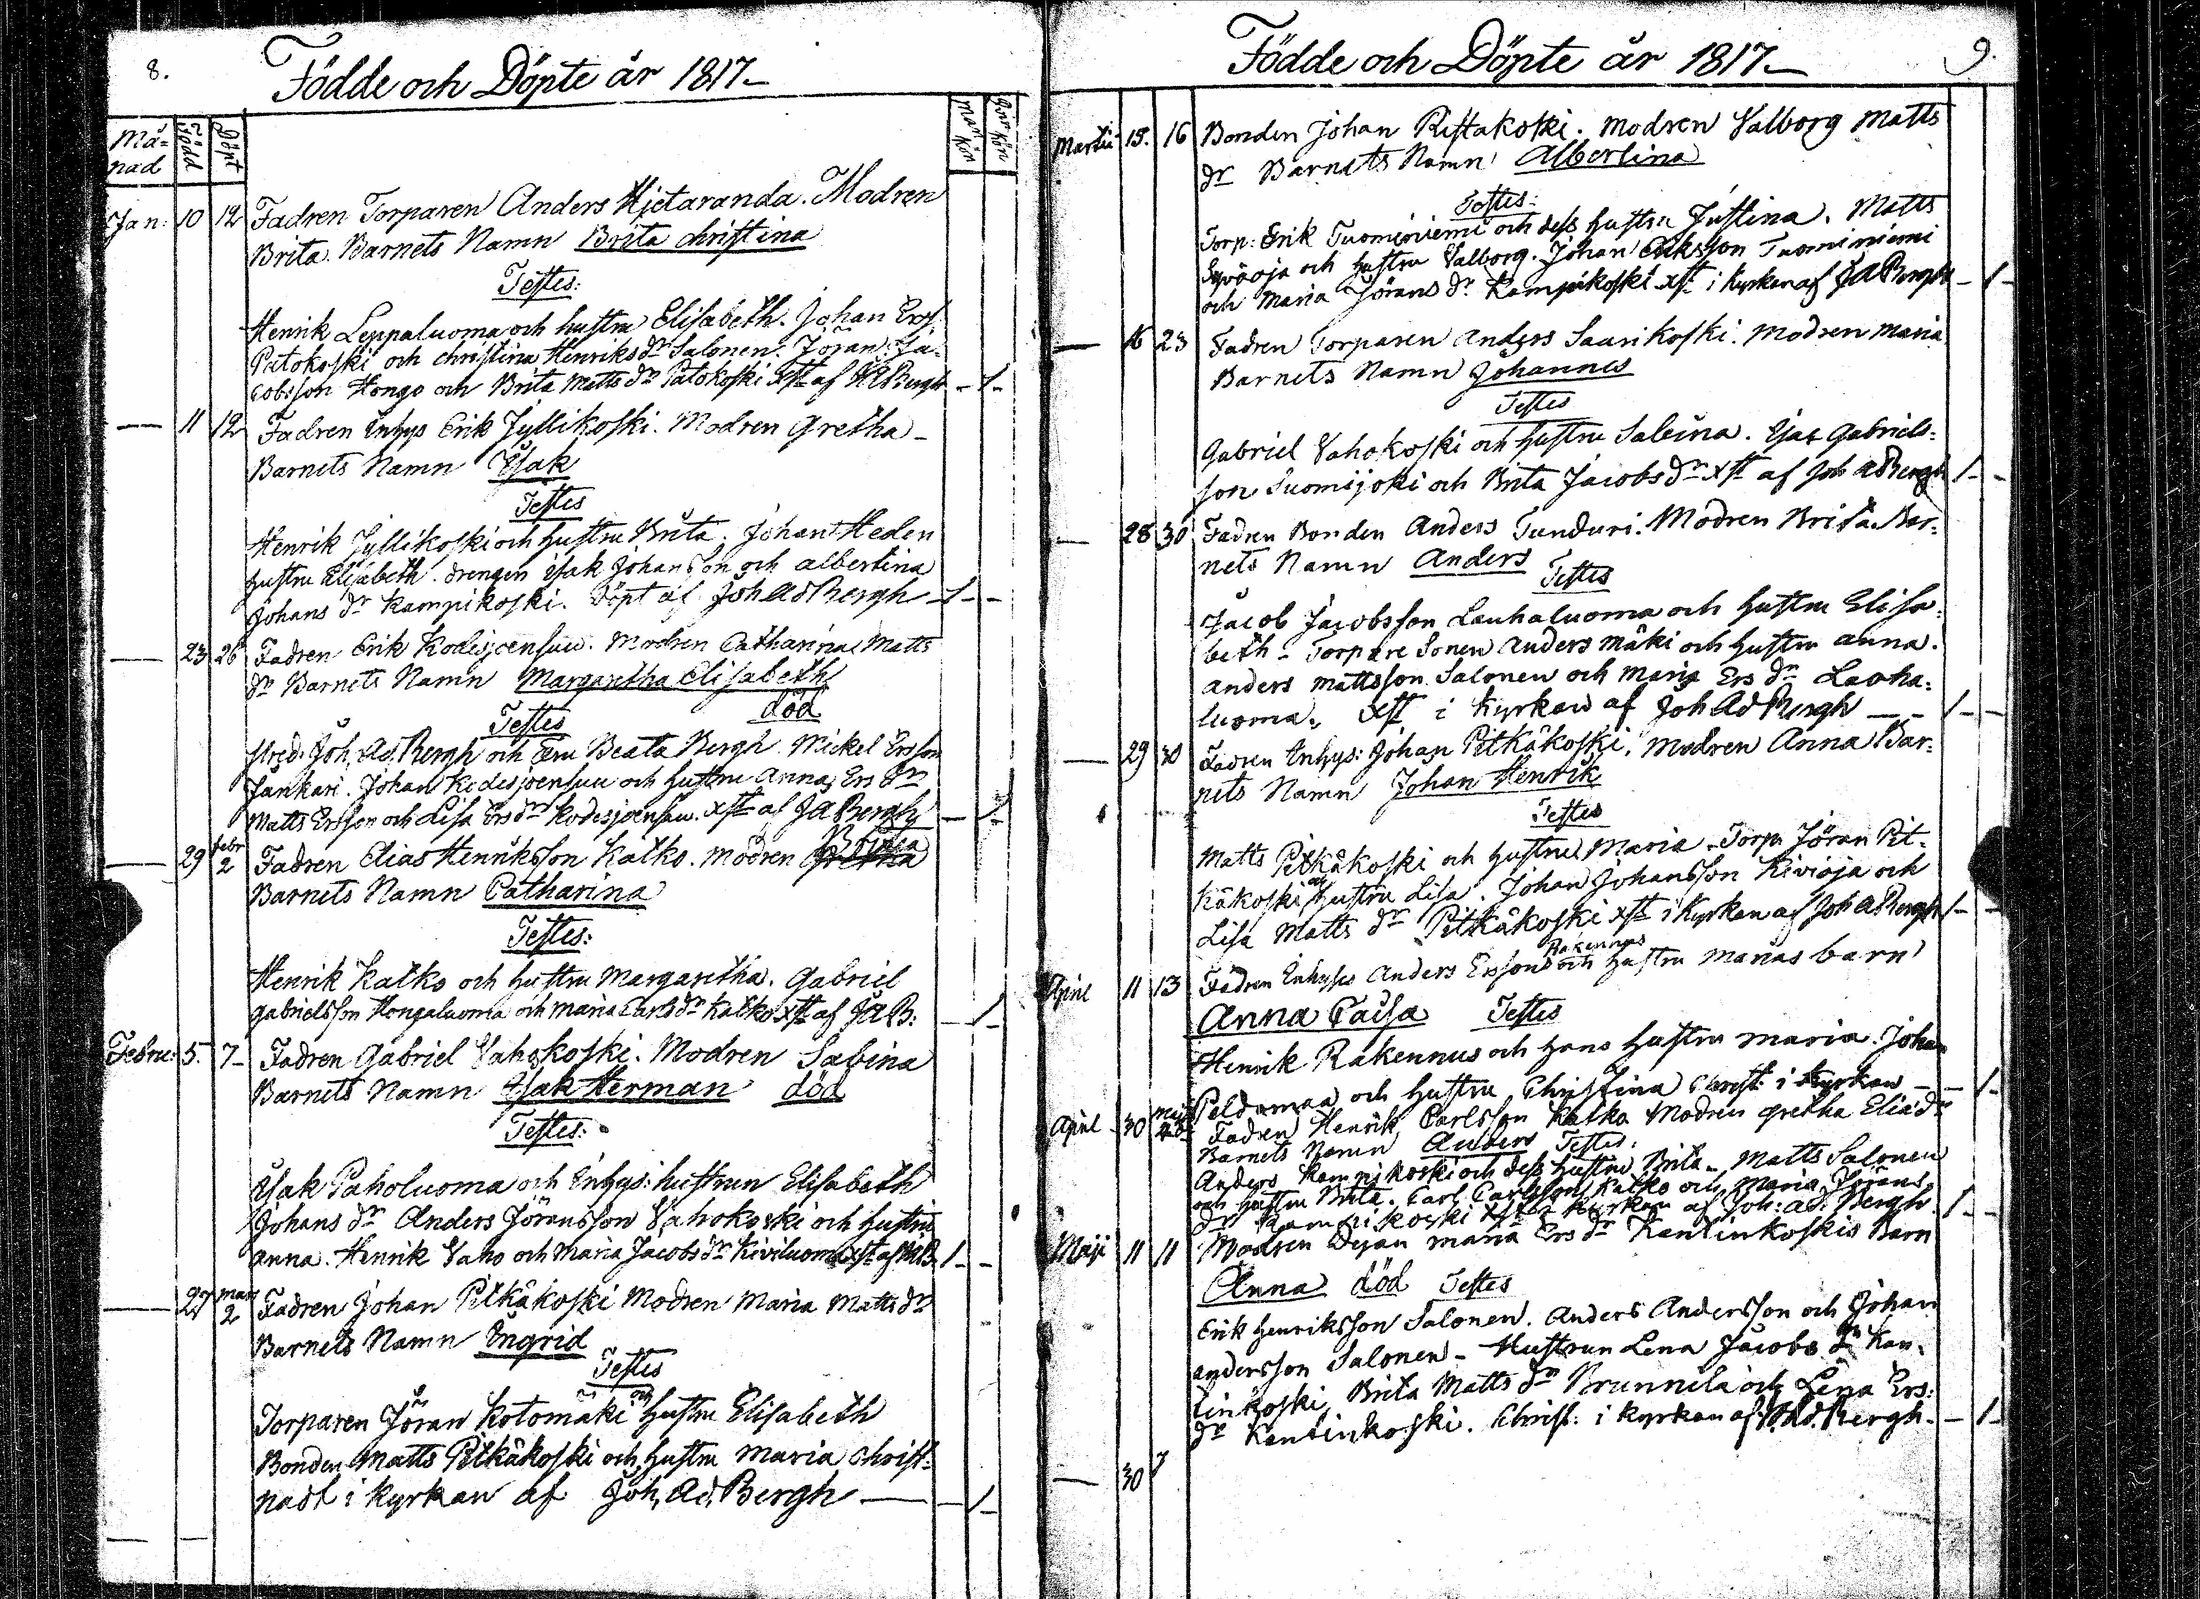 8.
Födde och Döpte år 1817_
Må=
nad
Född
Döpt
Man
kön
Qvin
kön
Jan: 10 12 Fadren Torparen Anders Hjetaranda. Modren
Brita. Barnets Namn Brita Christina
Testes:
Henrik Leppäluoma och hustru Elisabeth. Johan Ers
Patokoski och Christina Henriks dr Salonen. Jöran Ja=
cobsson Hongo och Brita Matts dr Patokoski Xst af JABergh - 1 -
— 11 12 Fadren Inhys Erik Jyllikoski. Modren Gretha -
Barnets Namn Isak
Testes
Henrik Jyllikoski och hustru Brita. Johan Heden
hustru Elisabeth. drengen Isak Johansson och Albertina
Johans dr Kampikoski. Döpt af Joh Ad Bergh - 1 - -
— 23 26 Fadren Erik Kodesjoensuu. Modren Catharina Matts
dr Barnets Namn Margaretha Elisabeth
Testes död
Joh. Ad. Bergh och Beata Bergh. Mickel Ersson
Jankari. Johan Kodesjoensuu och hustru Anna Ers dr
Matts Ersson och Lisa Ers dr Kodesjoensuu. Xst af JABergh — 1 -
— 29 febr 2 Fadren Elias Henriksson Katko. Modren
Barnets Namn Catharina
Testes:
Henrik Katko och hustru Margaretha. Gabriel
Gabrielsson Hongaluoma och Maria Carls dr Katko Xst af JAB: — 1 -
Febru: 5. 7 - Fadren Gabriel Vahokoski. Modren Sabina
Barnets Namn Isak Herman död
Testes:
Isak Paholuoma och Inhys: hustrun Elisabeth
Johans dr Anders Jöransson Vahokoski och hustru
Anna. Henrik Vaho och Maria Jacobs dr Kiviluoma Xst af JAB. 1 - -
— 27 mars 2 Fadren Johan Pitkäkoski Modren Maria Matts dr
Barnets Namn Ingrid
Testes
Torparen Jöran Kotomäki och hustru Elisabeth
Bonden Matts Pitkäkoski och hustru Maria Christ=
nadt i Kyrkan af Joh, Ad, Bergh — - 1 -
Födde och Döpte år 1817_
9.
Martii 15. 16 Bonden Johan Ristakoski. Modren Valborg Matts
dr Barnets Namn Albertina
Testes:
Torp: Erik Tuominiemi och dess hustru Justina. Matts
och hustru Valborg. Johan Eriksson Tuominiemi
och Maria Jörans dr Kampikoski Xst i Kyrkan af JABergh - 1 -
— 16 23 Fadren Torparen Anders Saarikoski. Modren Maria
Barnets Namn Johannes
Testes
Gabriel Vahokoski och hustru Sabina. Isac Gabriels=
son Suomijoki och Brita Jacobs dr Xst af Joh AdBergh 1 - -
— 28 30 Fadren Bonden Anders Tunduri. Modren Brita. Bar=
nets Namn Anders
Testes
Jacob Jacobsson Lauhaluoma och hustru Elisa=
beth - Torpare Sonen Anders Mäki och hustru Anna.
Anders Mattsson Salonen och Maria Ers dr Lauha=
luoma. Xst i Kyrkan af Joh Ad Bergh — - 1 - -
— 29 30 Fadren Inhys: Johan Pitkäkoski. Modren Anna Bar=
nets Namn Johan Henrik
Testes
Matts Pitkäkoski och hustru Maria - Torp. Jöran Pit=
käkoski och hustru Lisa. Johan Johansson Kivioja och
Lisa Matts dr Pitkäkoski Xst i Kyrkan af Joh AdBergh 1 - -
April 11 13 Fadren Inhyses Anders Erssons Rakennus och hustru Marias barn
Anna Caisa Testes
Henrik Rakennus och hans hustru Maria. Johan
Peldomaa och hustru Christina Christ: i Kyrkan - - 1 -
April 30 Maji Fadren Henrik Carlsson Katko Modren Gretha Elia dr
Barnets Namn Anders Testes:
Anders Kampikoski och dess hustru Brita - Matts Salonen
och hustru Brita. Carl Carlsson Katko och Maria Jörans
dr Kampikoski Xst i Kyrkan af Joh: Ad: Bergh. 1 - -
Maji 11 11 Modren Pigan Maria Ers dr Kantinkoskis Barn
Anna död Testes
Erik Henriksson Salonen. Anders Andersson och Johan
Andersson Salonen - Hustrun Lena Jacobs dr Kan=
tinkoski, Brita Matts dr Brunnila och Lena Ers:
dr Kantinkoski. Christ: i Kyrkan af J.Ad.Bergh. - 1 -
— 30